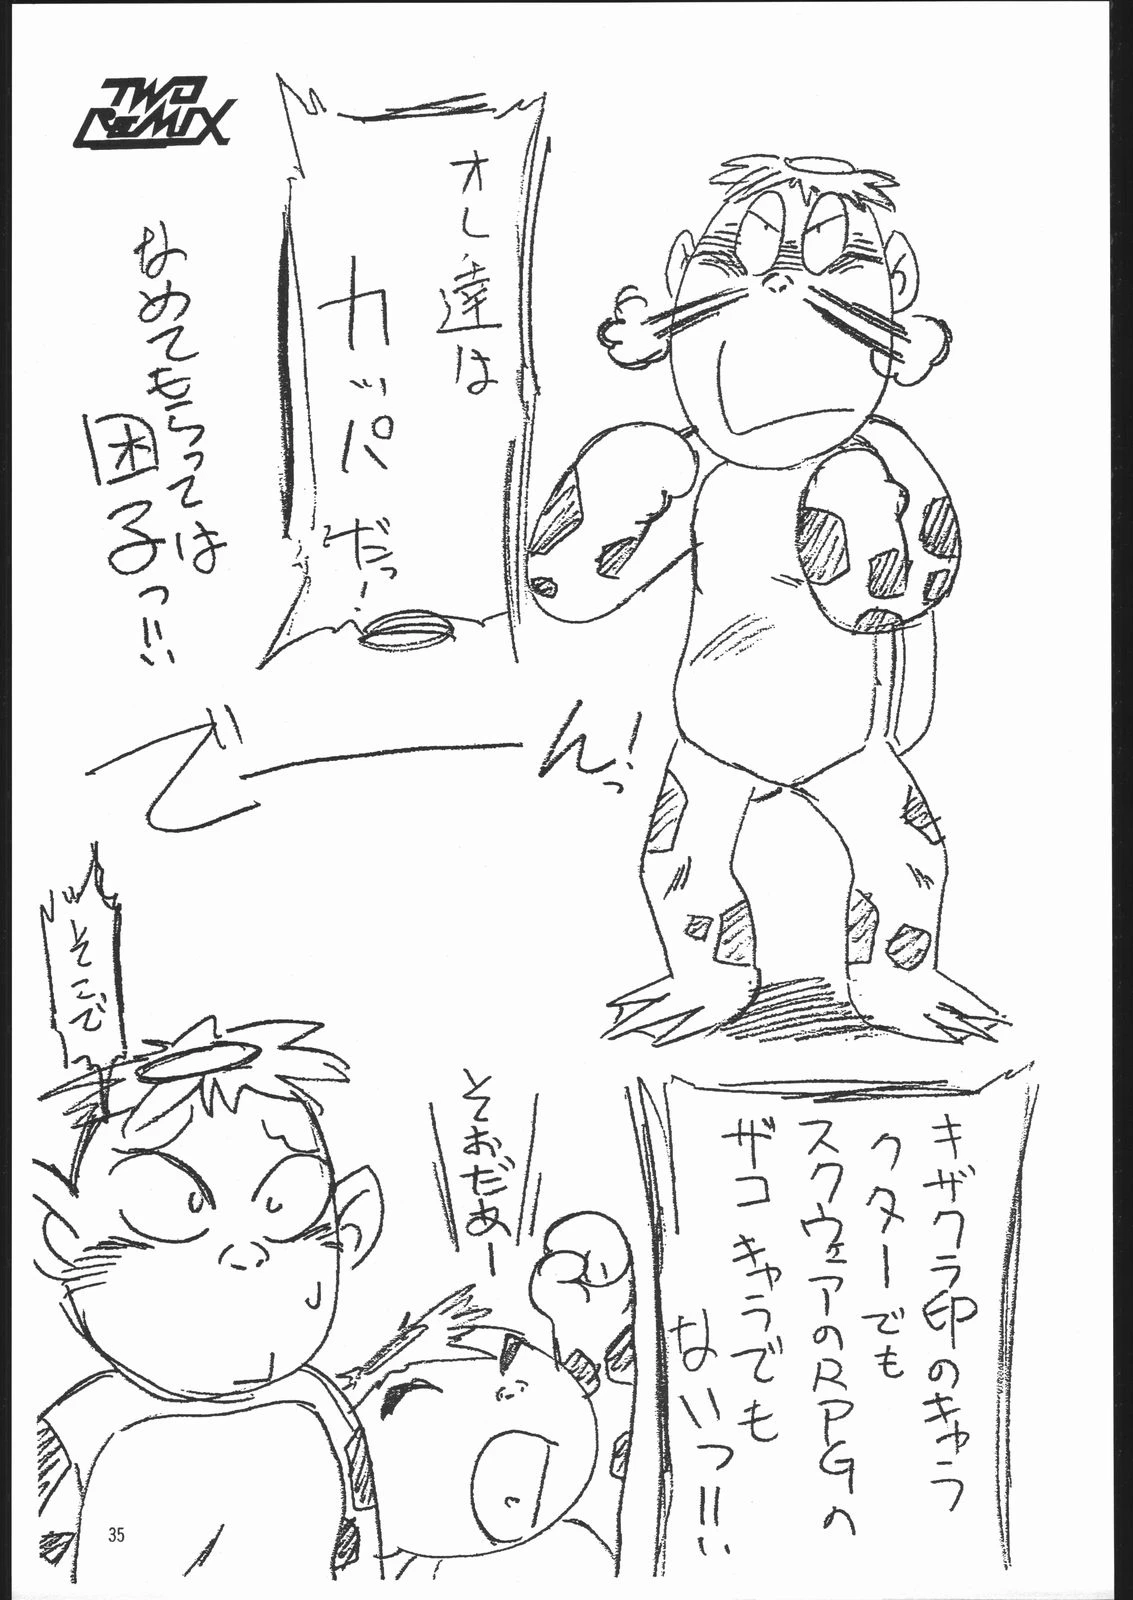 TWO
ReMIX
オレ達は
カッパだっ!
なめてもらっては
困子っ!!
で━━ん!っ
キザクラ印のキャラ
クターでも
スクウェアのRPGの
ザコキャラでも
ないっ!!
そおだあー
そこで
35